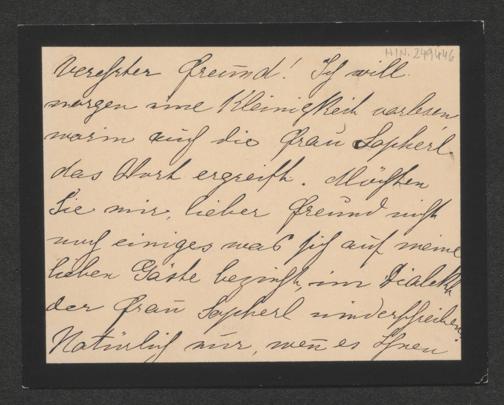 H.I.N. 249446
Verehrter Freund! Ich will
morgen eine Kleinigkeit vorlesen
worin auch die Frau Sopherl
das Wort ergreift. Möchten
Sie mir, lieber Freund nicht
noch einiges was sich auf meine
lieben Gäste bezieht, im Dialekt
der Frau Sopherl niederschreiben?
Natürlich nur, wen es Ihnen